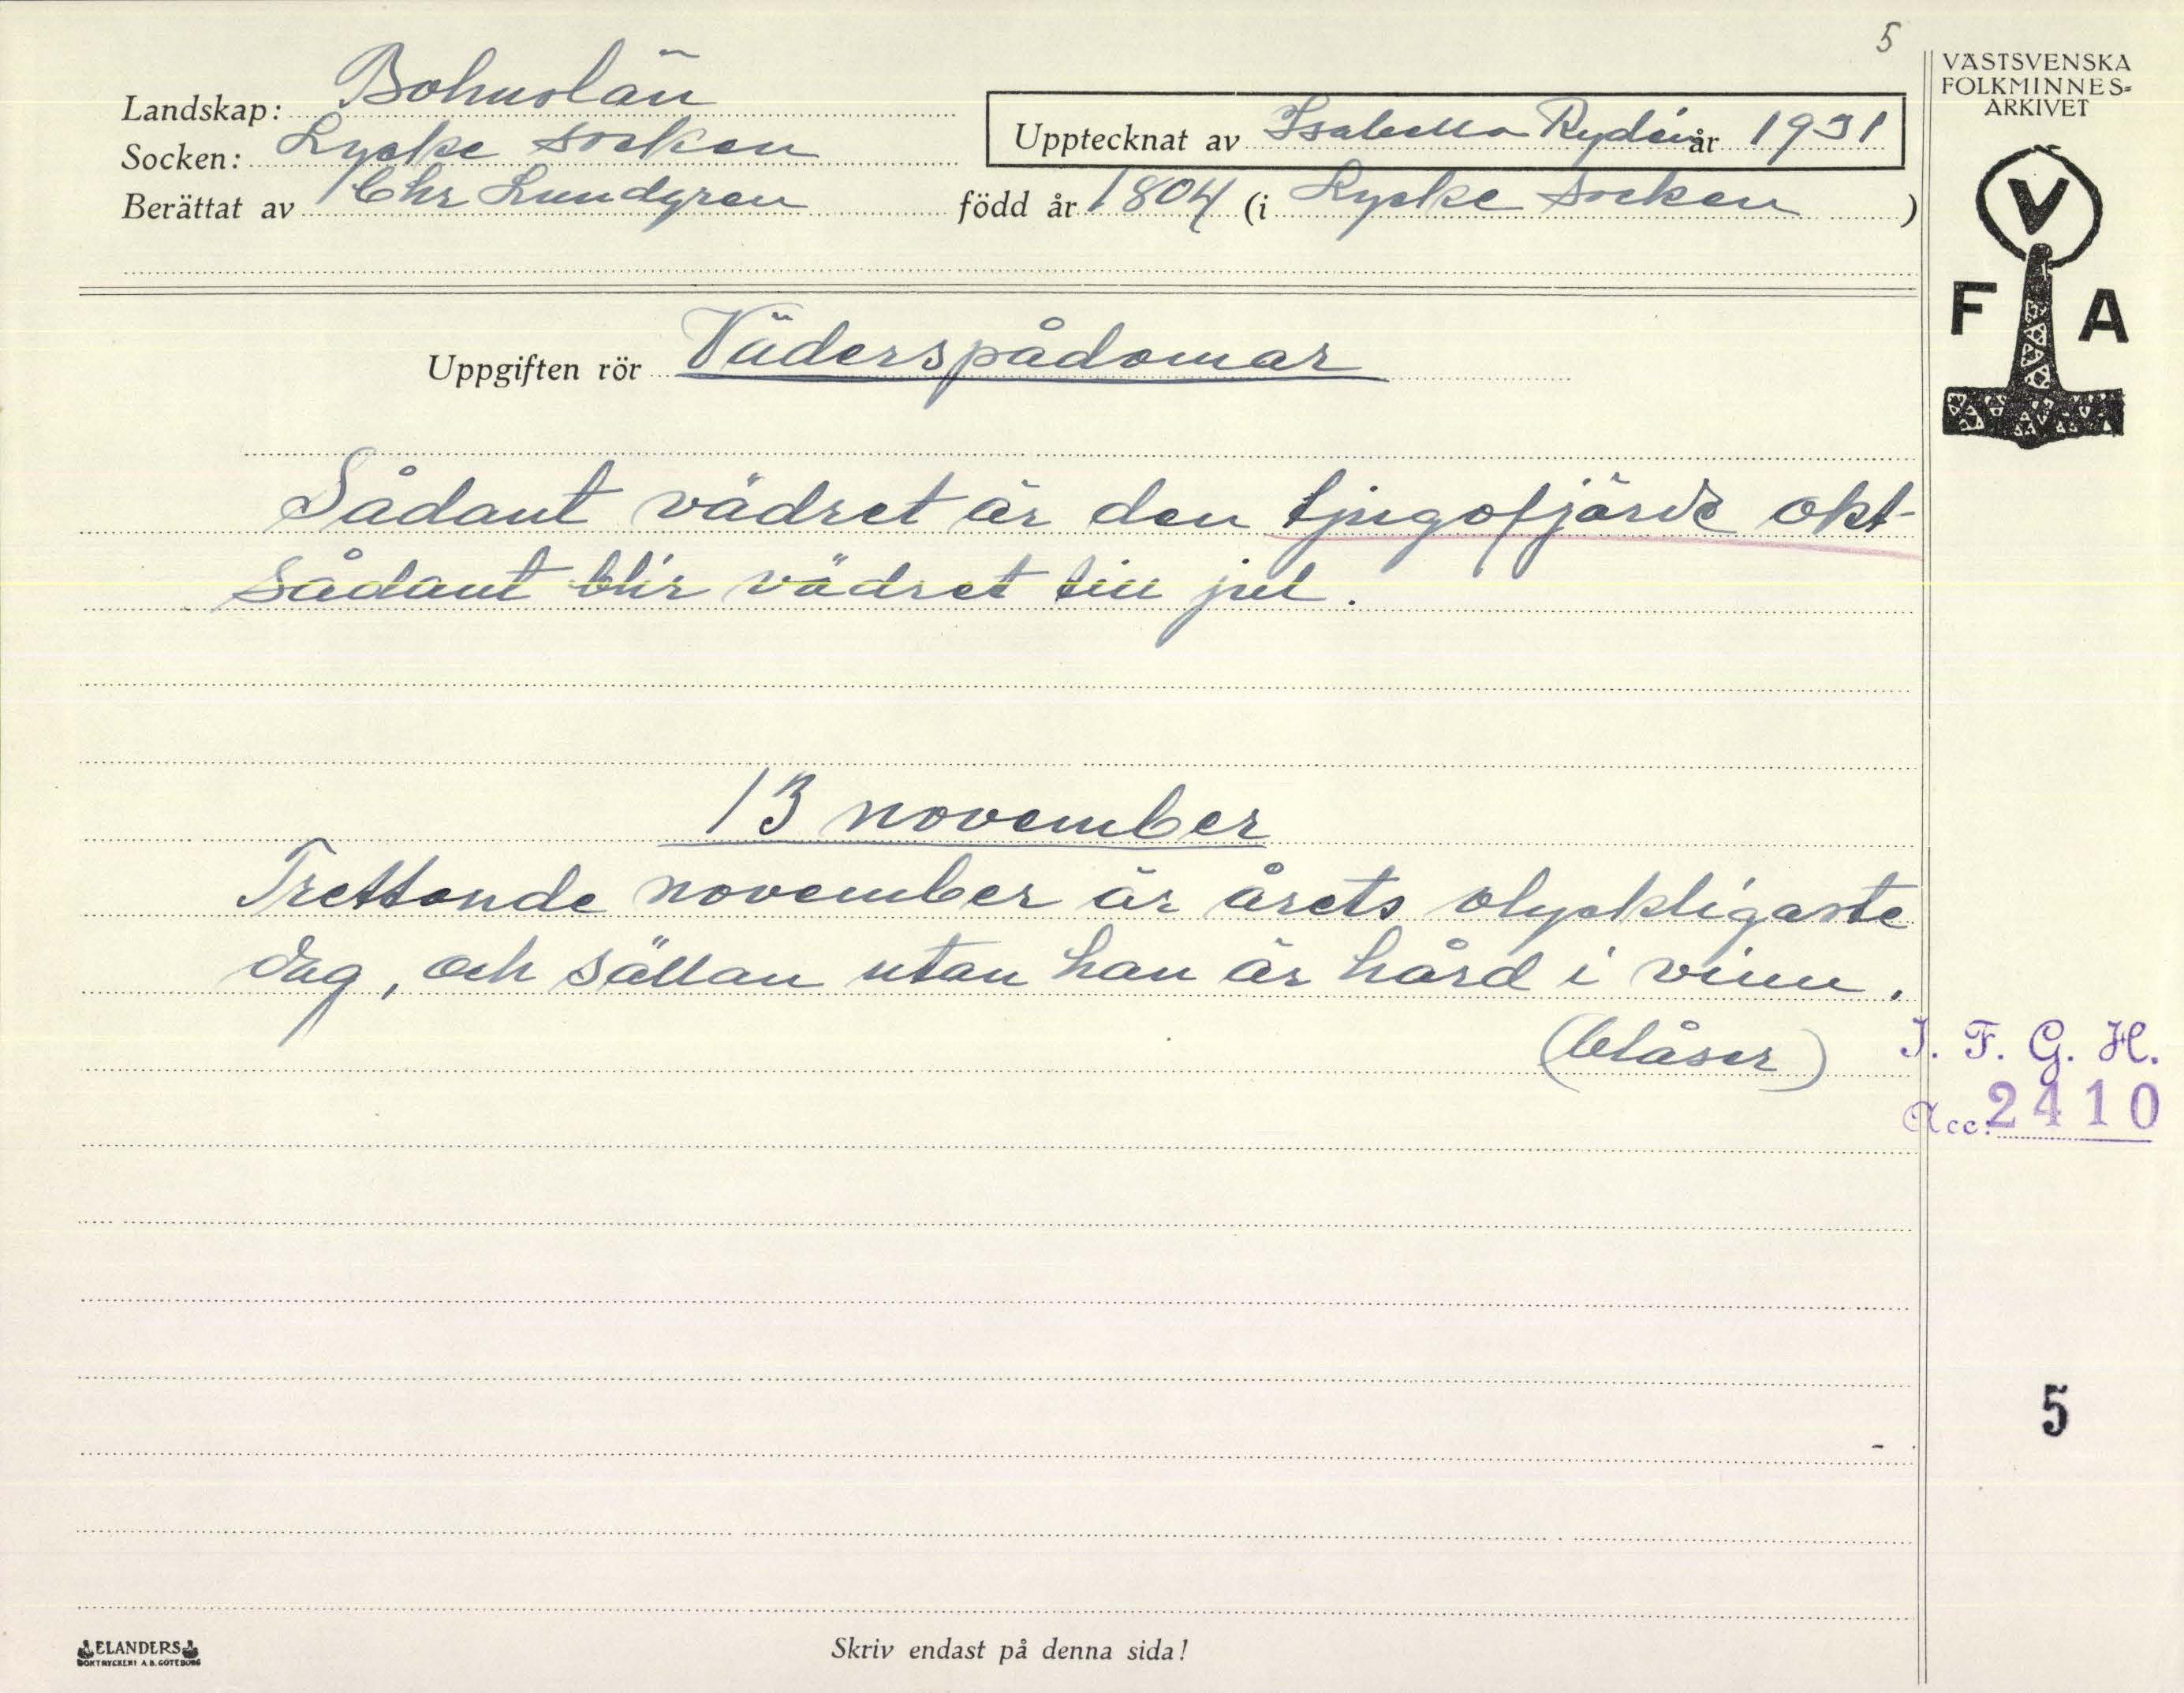 5
VÄSTSVENSKA
FOLKMINNES-
ARKIVET
Landskap: Bohuslän
Socken: Lycke socken
Upptecknat av Isabella Rydén år 1931
Berättat av Chr Lundgren född år 1804 (i Lycke socken )
V
F A
Uppgiften rör Väderspådomar
Sådant vädret är den tjugofjärde okt-
sådant blir vädret till jul.
13 november
Trettonde november är årets olyckligaste
dag, och sällan utan han är hård i vinn.
(blåser)
I. F. G. H.
Acc. 2410
5
ELANDERS
BOKTRYCKERI A.B. GÖTEBORG
Skriv endast på denna sida!